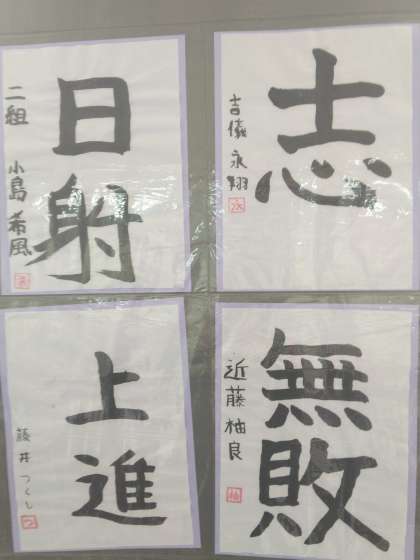 志
吉儀 永翔
日射
二組 小島 希風
無敗
近藤 柚良
上進
藤井 つくし
つ